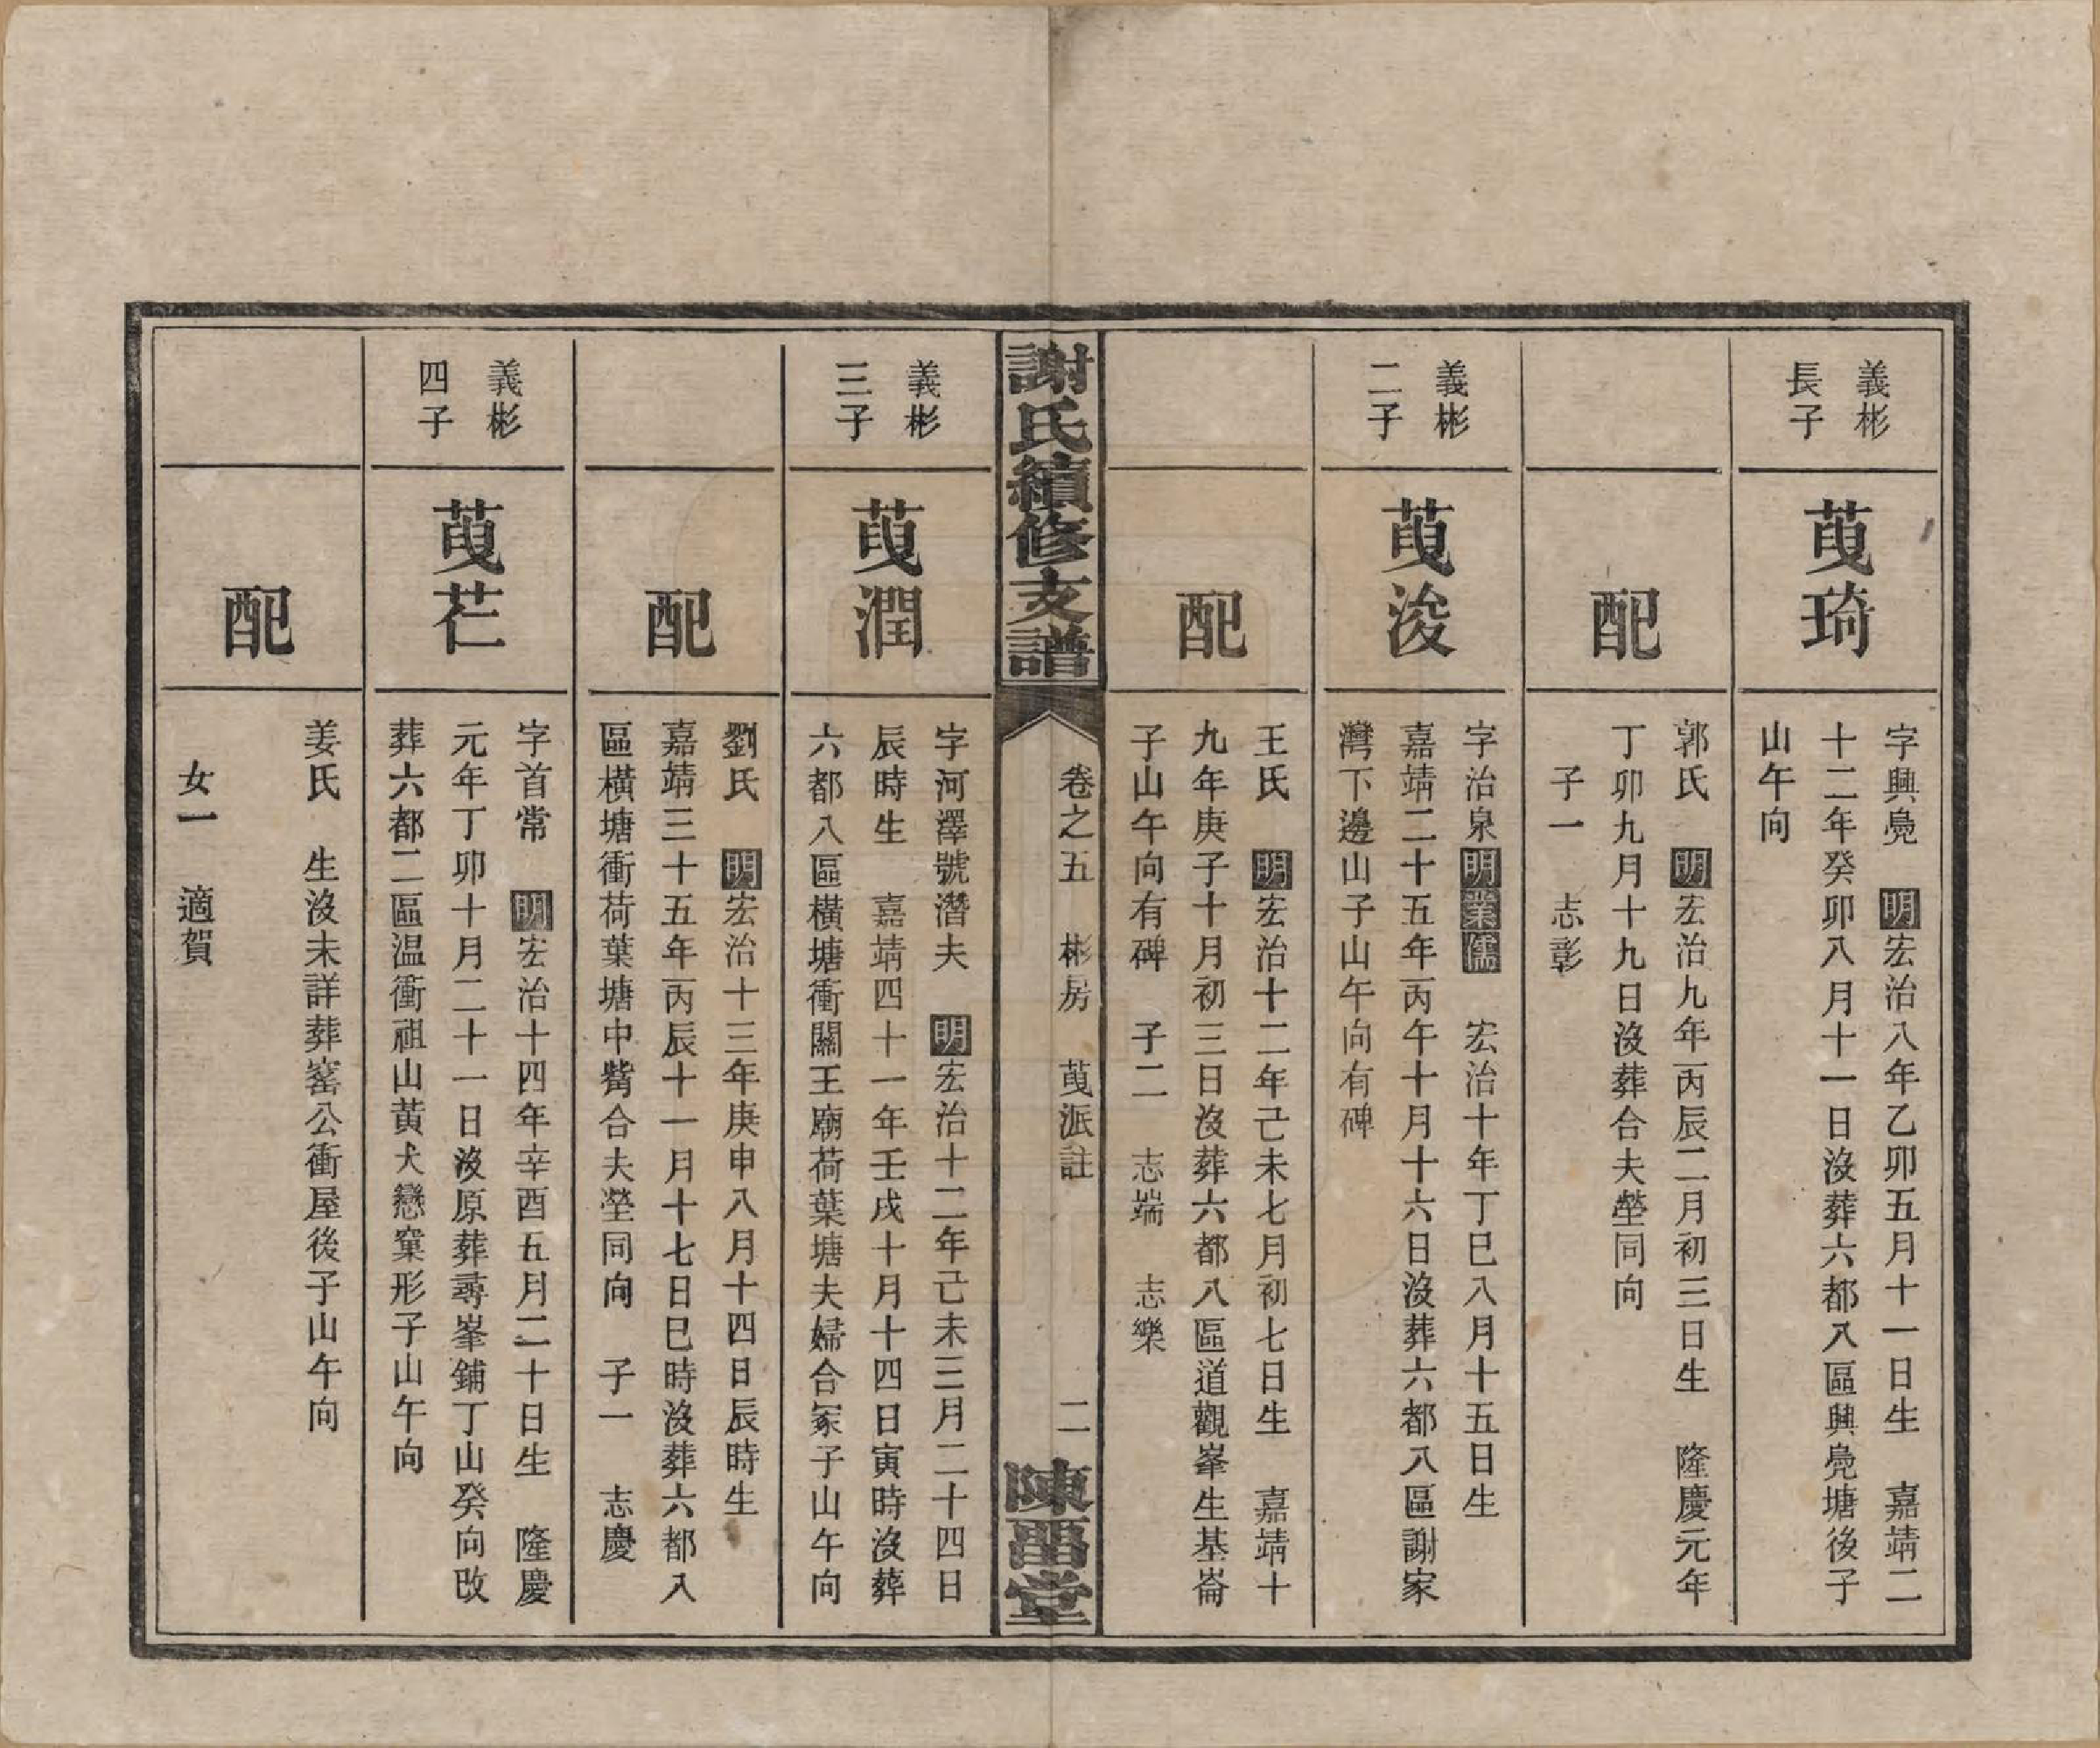 義彬
長子
萸琦
字興鳧　明宏治八年乙卯五月十一日生　嘉靖二
十二年癸卯八月十一日沒葬六都八區興鳧塘後子
山午向
配
郭氏　明宏治九年丙辰二月初三日生　隆慶元年
丁卯九月十九日沒葬合夫塋同向
子一　志彰
義彬
二子
萸浚
字治泉明業儒　宏治十年丁巳八月十五日生
嘉靖二十五年丙午十月十六日沒葬六都八區謝家
灣下邊山子山午向有碑
配
王氏　明宏治十二年己未七月初七日生　嘉靖十
九年庚子十月初三日沒葬六都八區道觀峯生基崙
子山午向有碑　子二　志端　志樂
謝氏續修支譜
卷之五　彬房　萸派註
二
陳畱堂
義彬
三子
萸潤
字河澤號潛夫　明宏治十二年己未三月二十四日
辰時生　嘉靖四十一年壬戌十月十四日寅時沒葬
六都八區橫塘衝關王廟荷葉塘夫婦合冢子山午向
配
劉氏　明宏治十三年庚申八月十四日辰時生
嘉靖三十五年丙辰十一月十七日巳時沒葬六都八
區橫塘衝荷葉塘中觜合夫塋同向　子一　志慶
義彬
四子
萸芢
字首常　明宏治十四年辛酉五月二十日生　隆慶
元年丁卯十月二十一日沒原葬尋峯鋪丁山癸向改
葬六都二區温衝祖山黃犬戀窠形子山午向
配
姜氏　生沒未詳葬窰公衝屋後子山午向
女一　適賀